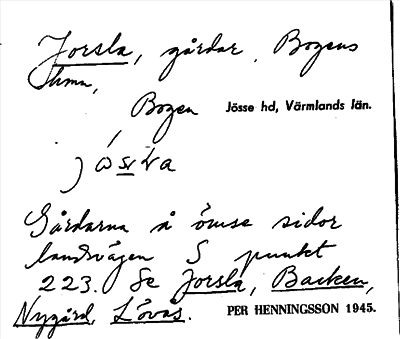 Jorsla, gårdar. Bogens
hmn,
Bogen Jösse hd, Värmlands län.
Gårdarna å ömse sidor
landsvägen S punkt
223. Se Jorsla, Backen,
Nygård, Lövås. PER HENNINGSSON 1945.